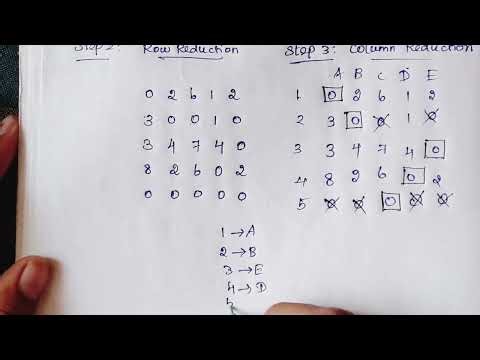 Step 2: Row Reduction
0 2 6 1 2
3 0 0 1 0
3 4 7 4 0
8 2 6 0 2
0 0 0 0 0
Step 3: Column Reduction
A B C D E
1 0 2 6 1 2
2 3 0 0 1 0
3 3 4 7 4 0
4 8 2 6 0 2
5 0 0 0 0 0
1 → A
2 → B
3 → E
4 → D